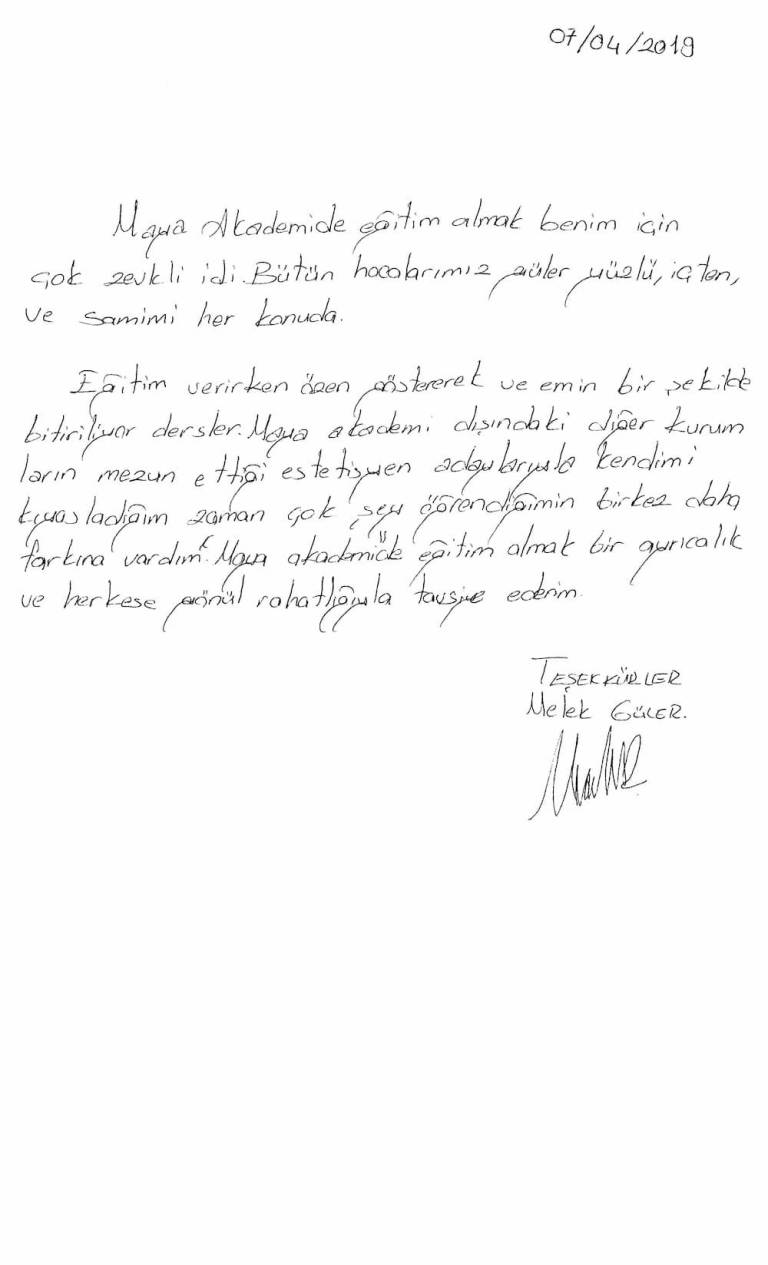 07/04/2019
Maya Akademide eğitim almak benim için
çok zevkli idi. Bütün hocalarımız güler yüzlü, içten,
ve samimi her konuda.
Eğitim verirken özen göstererek ve emin bir şekilde
bitiriliyor dersler. Maya akademi dışındaki diğer kurum
ların mezun ettiği estetisyen adaylarıyla kendimi
kıyasladığım zaman çok şey öğrendiğimin birkez daha
farkına vardım. Maya akademide eğitim almak bir ayrıcalık
ve herkese gönül rahatlığıyla tavsiye ederim.
TEŞEKKÜRLER
Melek GÜLER.